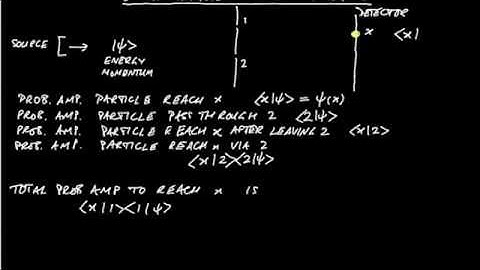 DETECTOR
1
x <x|
SOURCE [→ |ψ>
ENERGY
MOMENTUM
2
PROB. AMP. PARTICLE REACH x <x|ψ> = ψ(x)
PROB. AMP. PARTICLE PASS THROUGH 2 <2|ψ>
PROB. AMP. PARTICLE REACH x AFTER LEAVING 2 <x|2>
PROB. AMP. PARTICLE REACH x VIA 2
<x|2><2|ψ>
TOTAL PROB AMP TO REACH x IS
<x|1><1|ψ>